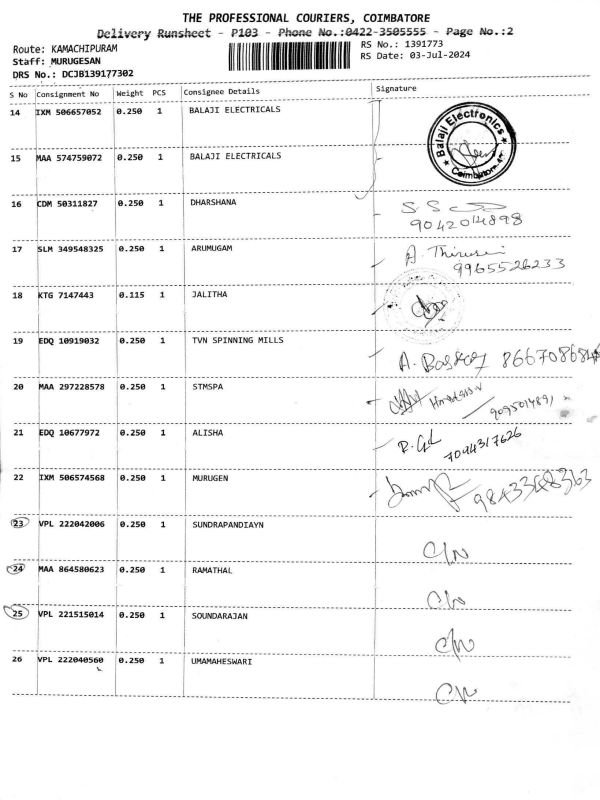 THE PROFESSIONAL COURIERS, COIMBATORE
Delivery Runsheet - P103 - Phone No.:0422-3505555 - Page No.:2
Route: KAMACHIPURAM
RS No.: 1391773
Staff: MURUGESAN
RS Date: 03-Jul-2024
DRS No.: DCJB139177302
S No Consignment No Weight PCS Consignee Details Signature
14 IXM 506657052 0.250 1 BALAJI ELECTRICALS
Balaji Electronics
Coimbatore
15 MAA 574759072 0.250 1 BALAJI ELECTRICALS
16 CDM 50311827 0.250 1 DHARSHANA
9042014898
17 SLM 349548325 0.250 1 ARUMUGAM
9965526233
18 KTG 7147443 0.115 1 JALITHA
19 EDQ 10919032 0.250 1 TVN SPINNING MILLS
A. Baskar
20 MAA 297228578 0.250 1 STMSPA
21 EDQ 10677972 0.250 1 ALISHA
7094317626
22 IXM 506574568 0.250 1 MURUGEN
9843348363
23 VPL 222042006 0.250 1 SUNDRAPANDIAYN
C/N
24 MAA 864580623 0.250 1 RAMATHAL
C/N
25 VPL 221515014 0.250 1 SOUNDARAJAN
C/N
26 VPL 222040560 0.250 1 UMAMAHESWARI
C/N